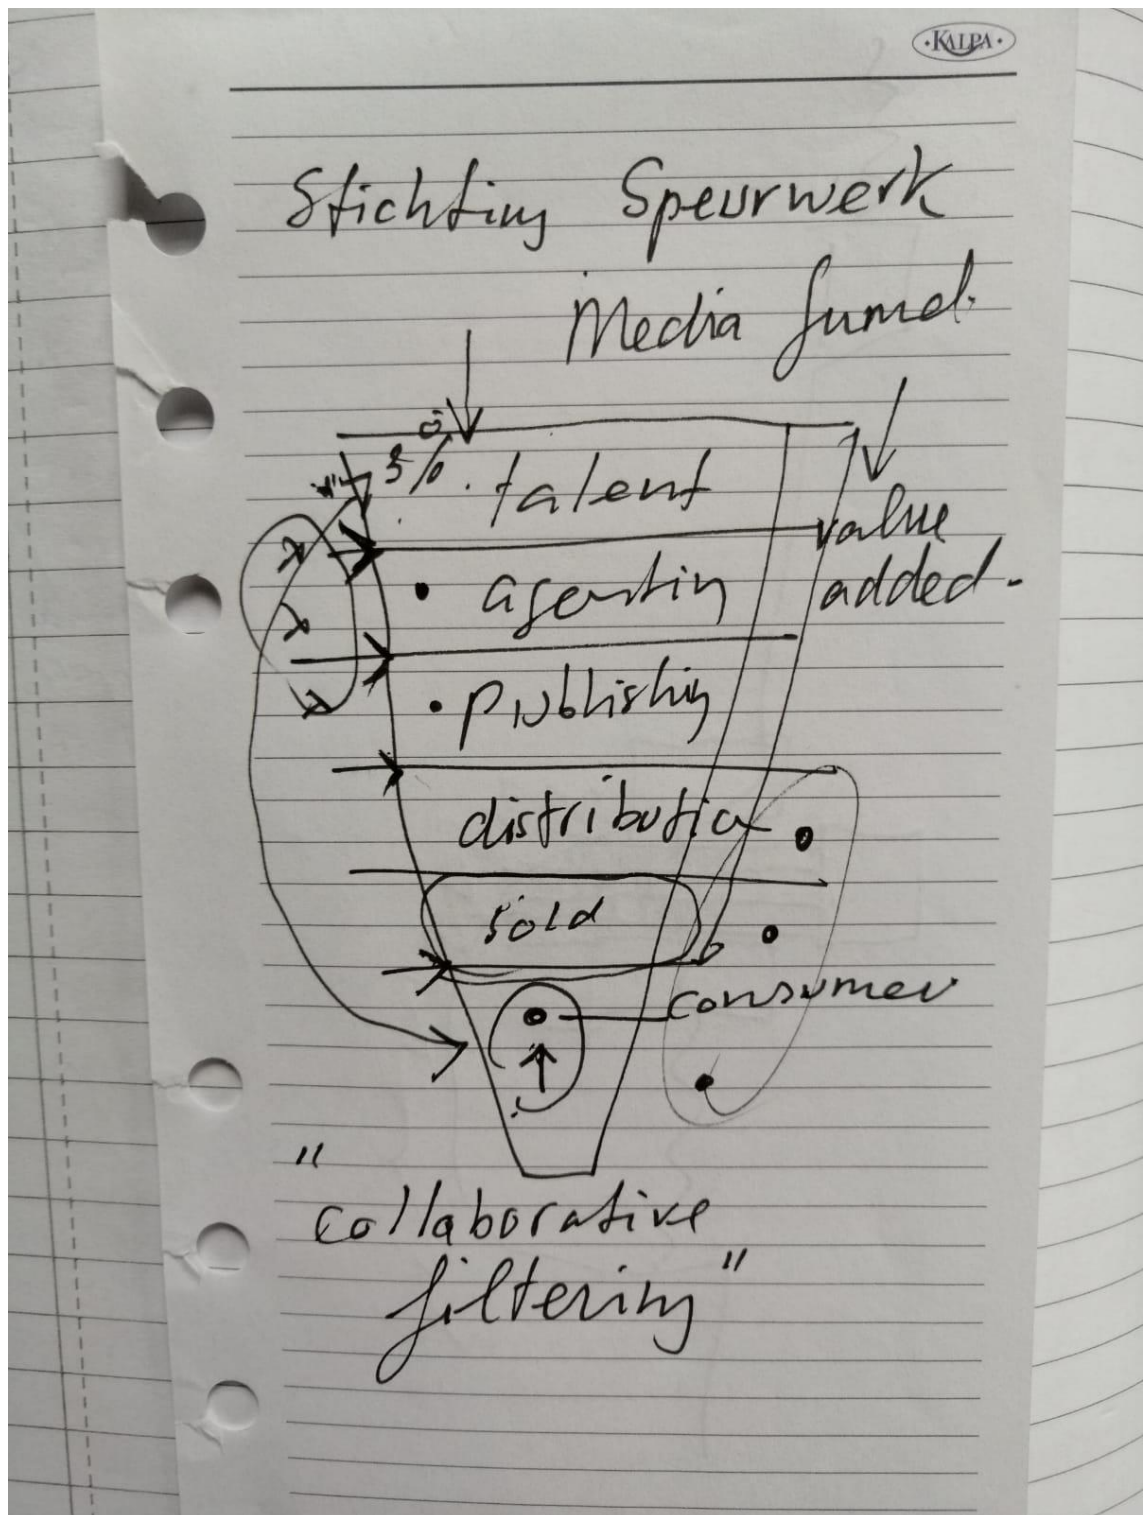 ·KALPA·
Stichting Speurwerk
Media funnel.
3%
talent
value
added.
agenting
publishing
distribution
sold
consumer
"
collaborative
filtering"